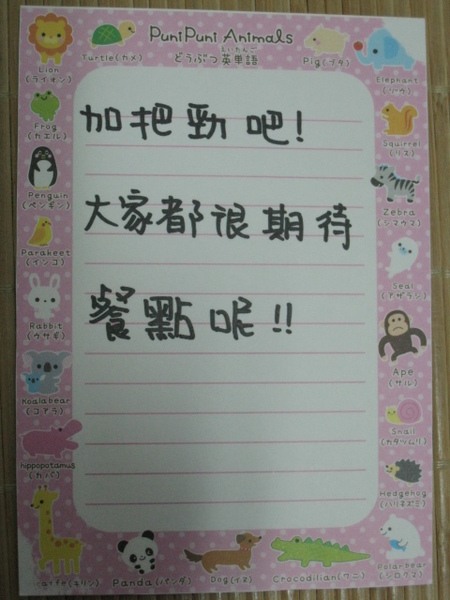 PuniPuni Animals
どうぶつ英単語
えいたんご
Lion
(ライオン)
Turtle(カメ)
Pig(ブタ)
Elephant
(ゾウ)
Frog
(カエル)
Squirrel
(リス)
Penguin
(ペンギン)
Zebra
(シマウマ)
Parakeet
(インコ)
Seal
(アザラシ)
Rabbit
(ウサギ)
Ape
(サル)
Koalabear
(コアラ)
Snail
(カタツムリ)
hippopotamus
(カバ)
Hedgehog
(ハリネズミ)
(キリン)
Panda(パンダ)
Dog(イヌ)
Crocodilian(ワニ)
Polar bear
(シロクマ)
加把勁吧!
大家都很期待
餐點呢!!